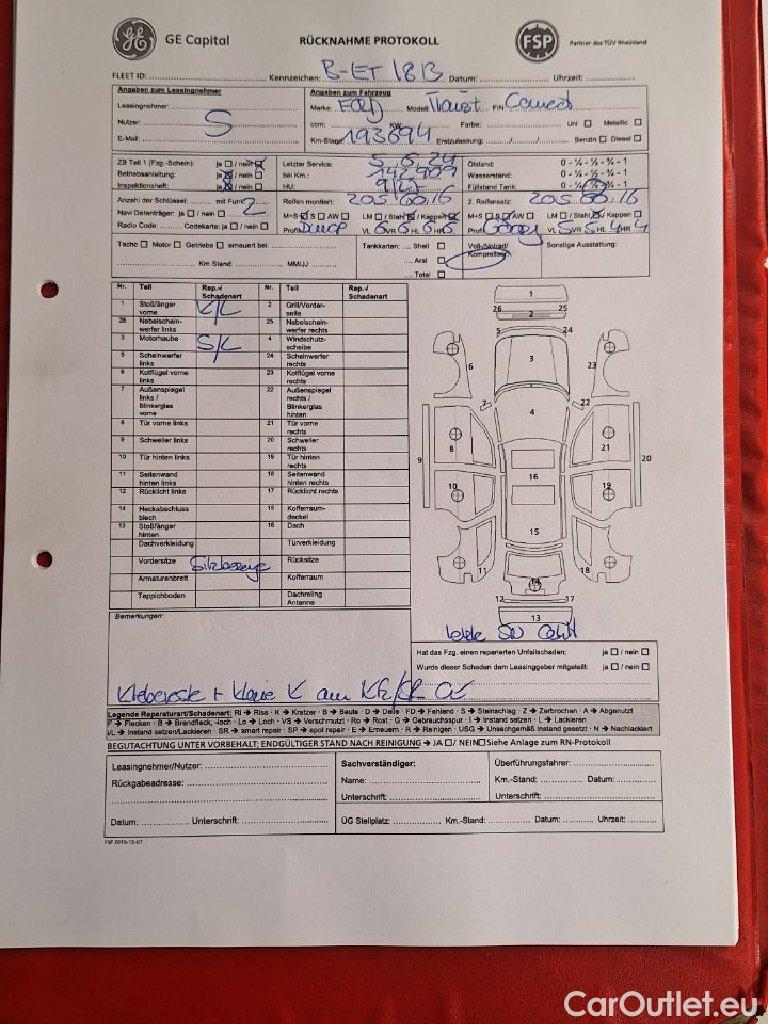 GE Capital RÜCKNAHME PROTOKOLL FSP Partner des TÜV Rheinland
FLEET ID: Kennzeichen: B-ET 18 B Datum: Uhrzeit:
Angaben zum Leasingnehmer Angaben zum Fahrzeug
Leasingnehmer: Marke: FORD Modell: Transit Connect FIN
Nutzer: S ccm: KW Farbe: Uni Metallic
E-Mail: Km-Stand: 193894 Erstzulassung: Benzin Diesel
ZB Teil 1 (Fzg.-Schein): ja / nein Letzter Service: 5.6.24 Ölstand: 0 - ¼ - ½ - ¾ - 1
Betriebsanleitung: ja / nein bei Km.: Wasserstand: 0 - ¼ - ½ - ¾ - 1
Inspektionsheft: ja / nein HU: Füllstand Tank: 0 - ¼ - ½ - ¾ - 1
Anzahl der Schlüssel: mit Funk: 2 Reifen montiert: 205.60.16 2. Reifensatz: 205.60.16
Navi Datenträger: ja / nein M+S S AW LM / Stahl / Kappen M+S S AW LM / Stahl / Kappen
Radio Code: Codekarte: ja / nein Profil VL 6 VR 6 HL 6 HR 5 Profil VL 5 VR 5 HL 4 HR 4
Tacho Motor Getriebe erneuert bei: Tankkarten: Shell Voll-/Notrad/ Sonstige Ausstattung:
Aral Kompressor:
Km Stand: MM/JJ: Total
Nr. Teil Rep.-/ Schadenart Nr. Teil Rep.-/ Schadenart
1 Stoßfänger vorne K/L 2 Grill/Vorderseite
28 Nebelscheinwerfer links 25 Nebelscheinwerfer rechts
3 Motorhaube S/L 4 Windschutzscheibe
5 Scheinwerfer links 24 Scheinwerfer rechts
6 Kotflügel vorne links 23 Kotflügel vorne rechts
7 Außenspiegel links / Blinkerglas vorne 22 Außenspiegel rechts / Blinkerglas hinten
8 Tür vorne links 21 Tür vorne rechts
9 Schweller links 20 Schweller rechts
10 Tür hinten links 19 Tür hinten rechts
11 Seitenwand hinten links 18 Seitenwand hinten rechts
12 Rücklicht links 17 Rücklicht rechts
14 Heckabschluss blech 15 Kofferraumdeckel
13 Stoßfänger hinten 16 Dach
Dachverkleidung Türverkleidung
Vordersitze Sitzbezüge Rücksitze
Armaturenbrett Kofferraum
Teppichboden Dachreling Antenne
1
26 25
2
5 24
3
6 23
7 22
4
8 21
9 20
16
10 19
15
11 18
14
12 17
13
Bemerkungen:
Hat das Fzg. einen reparierten Unfallschaden: ja / nein
Wurde dieser Schaden dem Leasinggeber mitgeteilt: ja / nein
Klebereste + kleine K am
Legende Reparaturart/Schadenart: RI → Riss · K → Kratzer · B → Beule · D → Delle · FD → Fehlend · S → Steinschlag · Z → Zerbrochen · A → Abgenutzt
F → Flecken · B → Brandfleck, -loch · Lo → Loch · VS → Verschmutzt · Ro → Rost · G → Gebrauchsspur · I → Instand setzen · L → Lackieren
I/L → Instand setzen/Lackieren · SR → smart repair · SP → spot repair · E → Erneuern · R → Reinigen · USG → Unsachgemäß instand gesetzt · N → Nachlackiert
BEGUTACHTUNG UNTER VORBEHALT; ENDGÜLTIGER STAND NACH REINIGUNG → JA / NEIN Siehe Anlage zum RN-Protokoll
Leasingnehmer/Nutzer: Sachverständiger: Überführungsfahrer:
Rückgabeadresse: Name: Km.-Stand: Datum:
Unterschrift: Unterschrift:
Datum: Unterschrift: ÜG Stellplatz: Km.-Stand: Datum: Uhrzeit:
FSP 20115-10-07
CarOutlet.eu